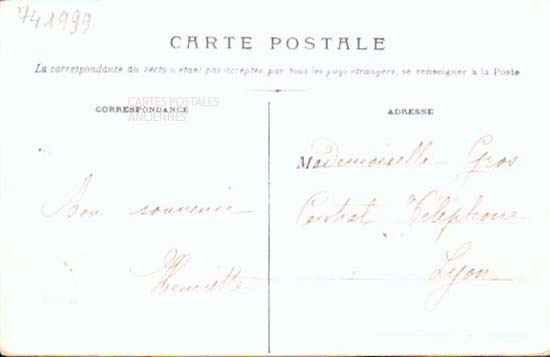 741999
CARTE POSTALE
La correspondance au recto n'étant pas acceptée par tous les pays étrangers, se renseigner à la Poste
CORRESPONDANCE
ADRESSE
CARTES POSTALES
ANCIENNES
Bon souvenir
Henriette
Mademoiselle Gros
Central Téléphone
Lyon